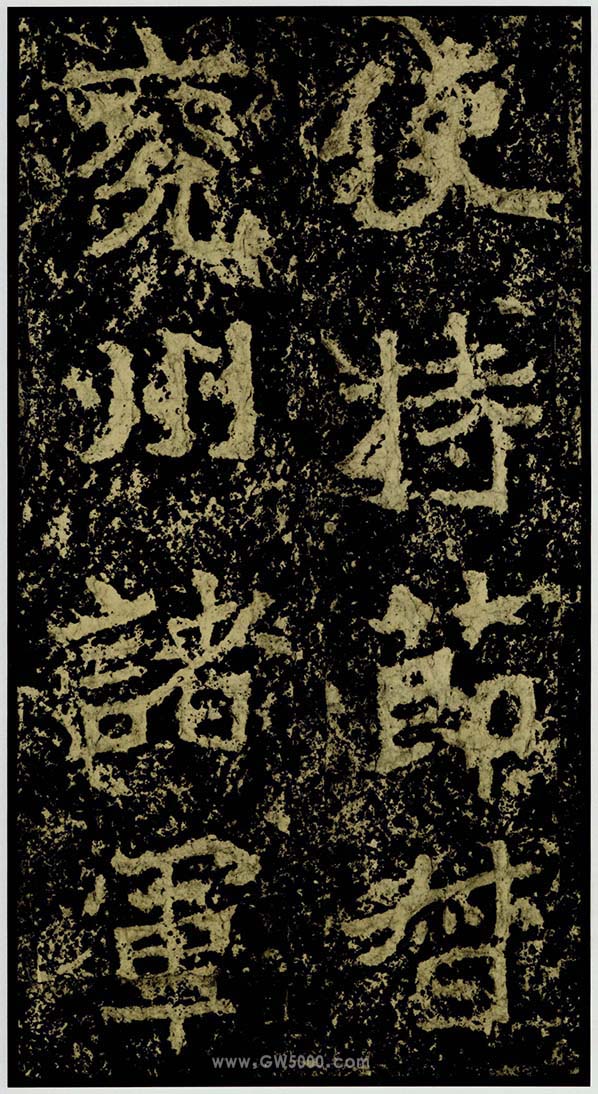 使持節督
兖州諸軍
www.GW5000.com